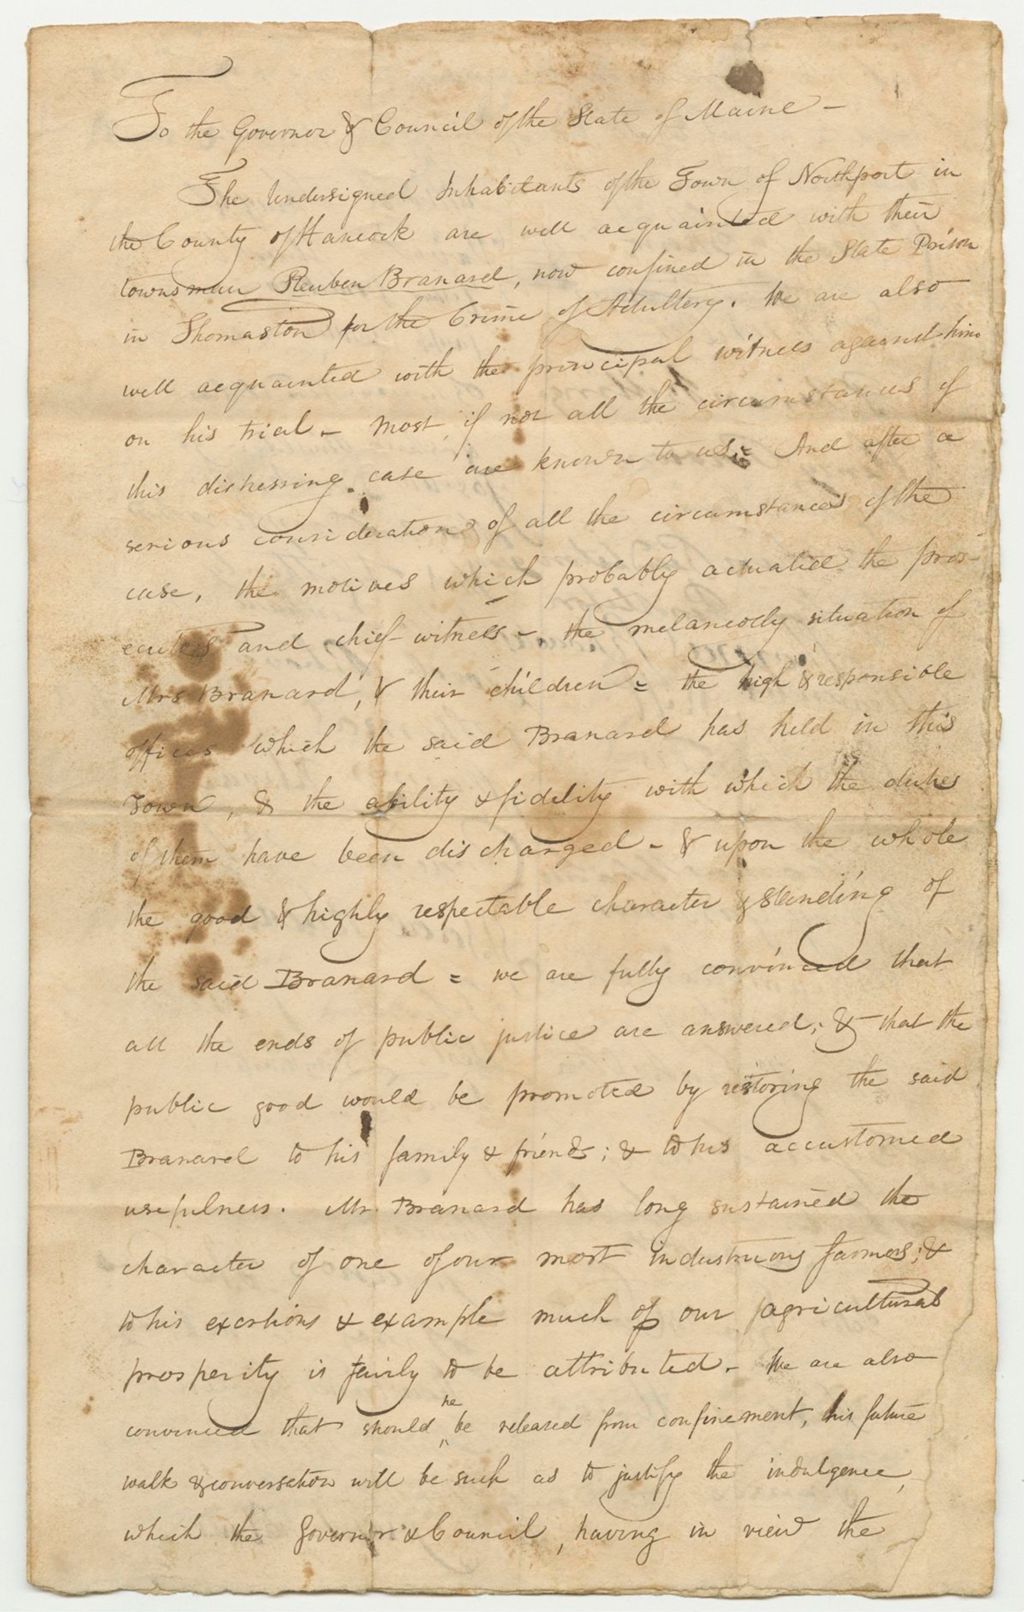 To the Governor & Council of the State of Maine -
The Undersigned Inhabitants of the Town of Northport in
the County of Hancock are well acquainted with their
townsman Reuben Branard, now confined in the State Prison
in Thomaston for the Crime of Adultery. We are also
well acquainted with the principal witness against him
on his trial - Most, if not all the circumstances of
this distressing case are known to us. And after a
serious consideration of all the circumstances of the
case, the motives which probably actuated the pros-
ecutors and chief witness - the melancolly situation of
Mrs Branard, & their children = the high & responsible
offices which the said Branard has held in this
Town, & the ability & fidelity with which the duties
of them have been discharged - & upon the whole
the good & highly respectable character & standing of
the said Branard = we are fully convinced that
all the ends of public justice are answered; & that the
public good would be promoted by restoring the said
Branard to his family & friends; & to his accustomed
usefulness. Mr Branard has long sustained the
character of one of our most industrious farmers; &
to his exertions & example much of our agricultural
prosperity is fairly to be attributed - We are also
convinced that should he be released from confinement, his future
walk & conversation will be such as to justify the indulgence,
which the Governor & Council, having in view the